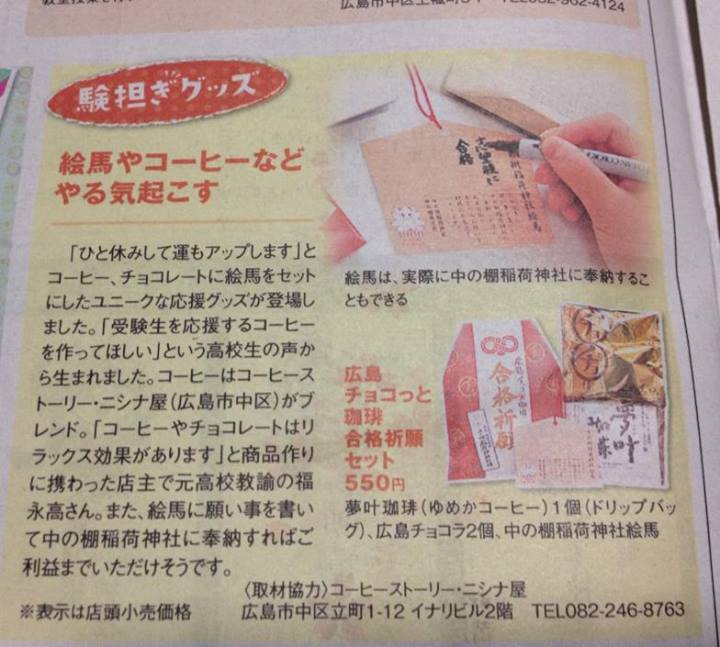 広島市中区
TEL082-962-4124
験担ぎグッズ
絵馬やコーヒーなど
やる気起こす
「ひと休みして運もアップします」と
コーヒー、チョコレートに絵馬をセット
にしたユニークな応援グッズが登場し
ました。「受験生を応援するコーヒー
を作ってほしい」という高校生の声か
ら生まれました。コーヒーはコーヒース
トーリー・ニシナ屋(広島市中区)がブ
レンド。「コーヒーやチョコレートはリ
ラックス効果があります」と商品作り
に携わった店主で元高校教諭の福
永高さん。また、絵馬に願い事を書い
て中の棚稲荷神社に奉納すればご
利益までいただけそうです。
志望校に
合格
絵馬は、実際に中の棚稲荷神社に奉納するこ
ともできる
広島
チョコっと
珈琲
合格祈願
セット
550円
合格祈願
夢叶
珈琲
夢叶珈琲(ゆめかコーヒー)1個(ドリップバッ
グ)、広島チョコラ2個、中の棚稲荷神社絵馬
〈取材協力〉コーヒーストーリー・ニシナ屋
※表示は店頭小売価格
広島市中区立町1-12 イナリビル2階 TEL082-246-8763